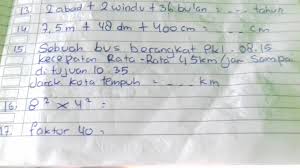 13. 2 abad + 2 windu + 36 bulan = .... tahun
14. 7,5 m + 48 dm + 400 cm = ..... cm
15. Sebuah bus berangkat pkl. 08.15
kecepatan Rata-Rata 45 km/jam Sampai
di tujuan 10.35
jarak kota tempuh = .... km
16. 8² × 4² =
17. faktor 40 =